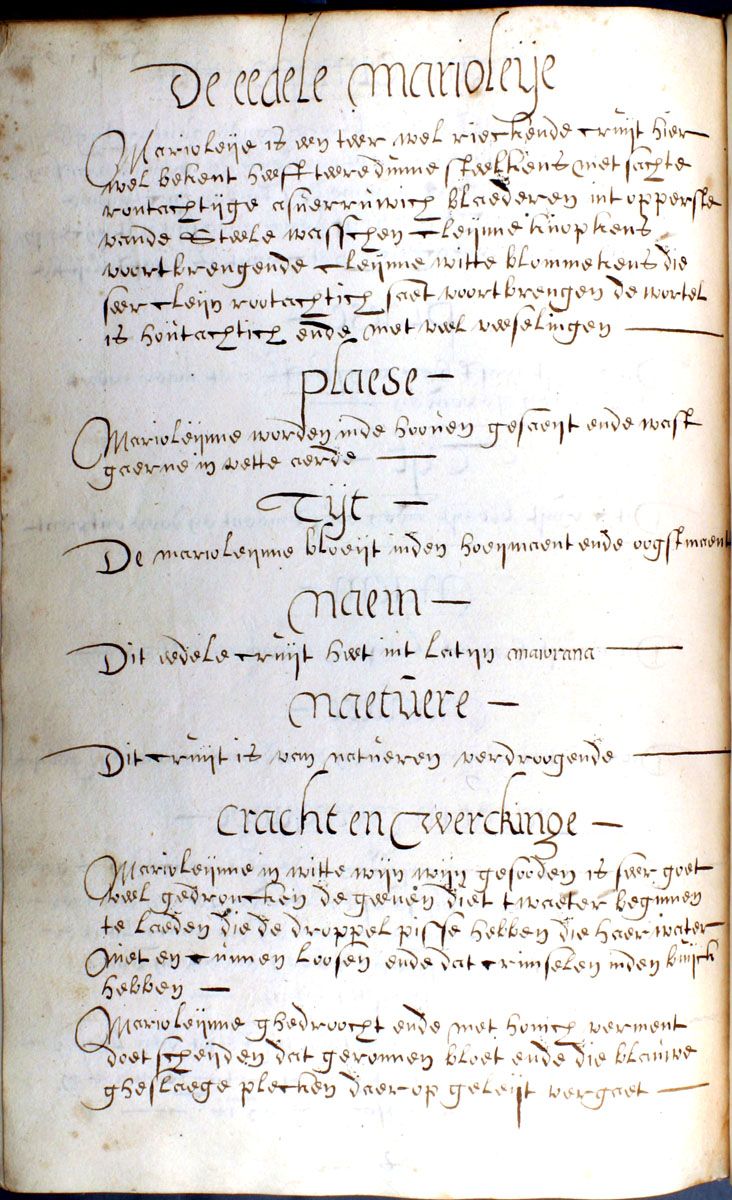 De eedele Marioleije
Marioleije is een teer wel rieckende cruijt hier
wel bekent heeft teere dunne steelkens met sachte
rontachtijge asverruwich blaederen int opperste
vande Steele wasschen cleijnne knopkens
voortbrengende cleijnne witte blommekens die
seer cleijn rootachtich saet voortbrengen de wortel
is houtachtich ende met veel veeselingen
plaese
Marioleijnne worden inde hooven gesaeijt ende wast
gaerne in vette aerde
Tijt
De marioleijnne bloeijt inden hoeijmaent ende oogstmaent
Naem
Dit eedele cruijt heet int Latijn maiorana
Naetuere
Dit cruijt is van natueren verdroogende
Cracht en Werckinge
Marioleijnne in witte wijn wijn gesooden is seer goet
veel gedroncken de geenen diet twaeter beginnen
te laeden die de droppel pisse hebben die haer water
niet en cunnen loosen ende dat crimselen inden buijck
hebben
Marioleijnne ghedroocht ende met honich verment
doet scheijden dat geronnen bloet ende die blauwe
gheslaege plecken daer op geleijt vergaet